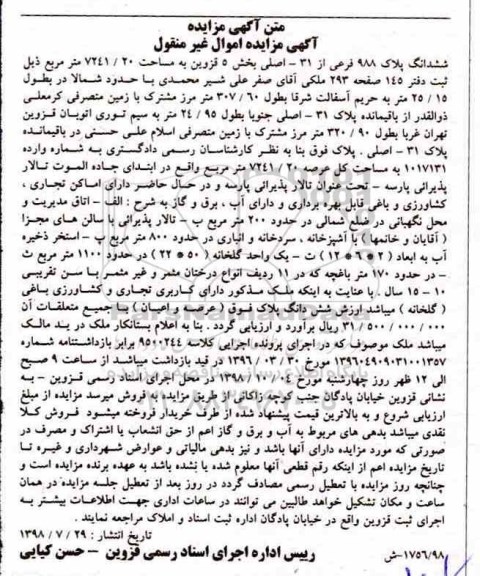 متن آگهی مزایده
آگهی مزایده اموال غیر منقول
ششدانگ پلاک ۹۸۸ فرعی از ۳۱ - اصلی بخش ۵ قزوین به مساحت ۲۰ / ۷۲۴۱ متر مربع ذیل
ثبت دفتر ۱۴۵ صفحه ۲۹۳ ملکی آقای صفر علی شیر محمدی با حدزد شمالا در بطول
۱۵ / ۲۵ متر به حریم آسفالت شرقا بطول ۶۰ / ۳۰۷ متر مرز مشترک با زمین متصرفی کرمعلی
ذوالقدر از باقیمانده پلاک ۳۱ - اصلی جنوبا بطول ۹۵ / ۲۴ متر به سیم توری اتوبان قزوین
تهران غربا بطول ۹۰ / ۳۲۰ متر مرز مشترک با زمین متصرفی اسلام علی حسنی در باقیمانده
پلاک ۳۱ - اصلی . پلاک فوق بنا به نظر کارشناسان رسمی دادگستری به شماره وارده
۱۰۱۷۱۳۱ به مساحت کل عرصه ۲۰ / ۷۲۴۱ متر مربع واقع در ابتدای جاده الموت تالار
پذیرائی پارسه - تحت عنوان تالار پذیرائی پارسه و در حال حاضر دارای اماکن تجاری ،
کشاورزی و باغی قابل بهره برداری و دارای آب ، برق و گاز به شرح : الف - اتاق مدیریت و
محل نگهبانی در ضلع شمالی در حدود ۲۰۰ متر مربع ب - تالار پذیرائی با سالن های مجزا
( آقایان و خانمها ) با آشپزخانه ، سردخانه و انباری در حدود ۸۰۰ متر مربع پ - استخر ذخیره
آب به ابعاد ( ۲ * ۶ * ۱۲ ) ت - یک واحد گلخانه ( ۵۰ * ۲۲ ) در حدود ۱۱۰۰ متر مربع ث
- در حدود ۱۷۰ متر باغچه که در ۱۱ ردیف انواع درختان مثمر و غیر مثمر با سن تقریبی
۱۰ - ۱۵ سال . با عنایت به اینکه ملک مذکور دارای کاربری تجاری و کشاورزی باغی
( گلخانه ) میباشد ارزش شش دانگ پلاک فوق ( عرصه و اعیان ) با جمیع متعلقات آن
۳۱ / ۵۰۰ / ۰۰۰ / ۰۰۰ ریال برآورد و ارزیابی گردد . بنا به اعلام بستانکار ملک در ید مالک
میباشد ملک موصوف که در اجرای پرونده اجرایی کلاسه ۹۵۰۰۲۴۴ برابر بازداشتنامه شماره
۱۳۹۶۰۴۹۰۹۰۳۱۰۰۱۳۵۷ مورخ ۳۰ / ۰۳ / ۱۳۹۶ در قید بازداشت میباشد از ساعت ۹ صبح
الی ۱۲ ظهر روز چهارشنبه مورخ ۰۴ / ۱۰ / ۱۳۹۸ در محل اجرای اسناد رسمی قزوین - به
نشانی قزوین خیابان پادگان جنب کوچه زاکانی از طریق مزایده به فروش میرسد مزایده از مبلغ
ارزیابی شروع و به بالاترین قیمت پیشنهاد شده از طرف خریدار فروخته میشود فروش کلا
نقدی میباشد بدهی های مربوط به آب و برق و گاز اعم از حق انشعاب یا اشتراک و مصرف در
صورتی که مورد مزایده دارای آنها باشد و نیز بدهی مالیاتی و عوارض شهرداری و غیره تا
تاریخ مزایده اعم از اینکه رقم قطعی آنها معلوم شده یا نشده باشد به عهده برنده مزایده است و
چنانچه روز مزایده با تعطیل رسمی مصادف گردد در روز بعد از تعطیل جلسه مزایده در همان
ساعت و مکان تشکیل خواهد طالبین می توانند در ساعات اداری جهت اطلاعات بیشتر به
اجرای ثبت قزوین واقع در خیابان پادگان اداره ثبت اسناد و املاک مراجعه نمایند .
تاریخ انتشار : ۲۹ / ۷ / ۱۳۹۸
رییس اداره اجرای اسناد رسمی قزوین - حسن کیایی
۱۷۵۶/۹۸-ش